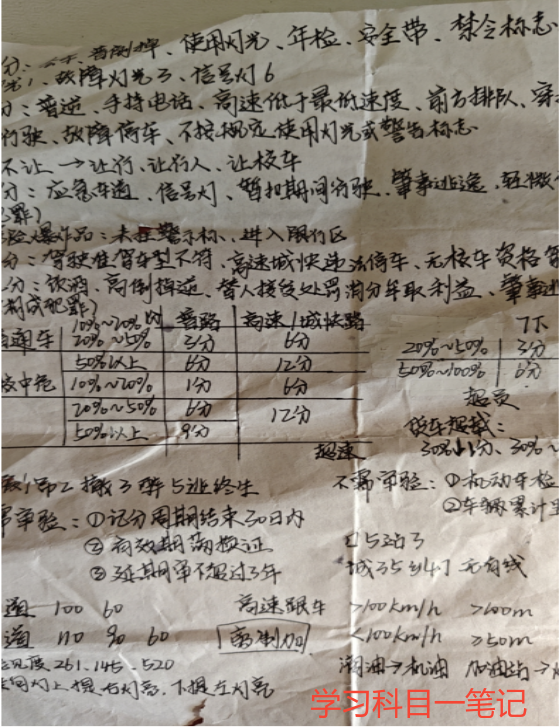 分：会车、普倒掉、使用灯光、年检、安全带、禁令标志
故障灯光3、信号灯6
分：普逆、手持电话、高速低于最低速度、前方排队、穿
行驶、故障停车、不按规定使用灯光或警告标志
不让→让行、让行人、让校车
分：应急车道、信号灯、暂扣期间驾驶、肇事逃逸，轻微
犯罪）
险爆炸品：未挂警示标、进入限行区
分：驾驶准驾车型不符、高速城快违法停车、无校车资格驾
分：饮酒、高倒掉逆、替人接受处罚满分牟取利益、肇事
构成犯罪）
10%~20% 时 普路 高速/城快路
普通车 20%~50% 3分 6分
50%以上 6分 12分
校中危 10%~20% 1分 6分
20%~50% 6分 12分
50%以上 9分
超速
7下
20%~50% 3分
50%~100% 6分
超员
货车超载：
30%以1分、30%~
2撤3醉5逃终生
审验：①记分周期结束30日内
②有效期满换证
③延期审不超过3年
不需审验：①机动车检
②车辆累计
口5站3
城35乡47 无有线
道 100 60
道 110 90 60
高速跟车 >100km/h >100m
<100km/h ≥50m
离制加
漏油→机油 加油站→
见度 261、145、520
灯上提右灯亮、下提左灯亮
学习科目一笔记